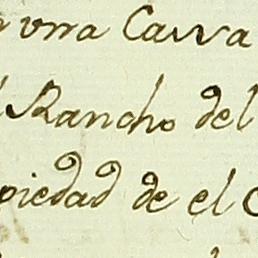 una Cassa
Rancho del
piedad de el C